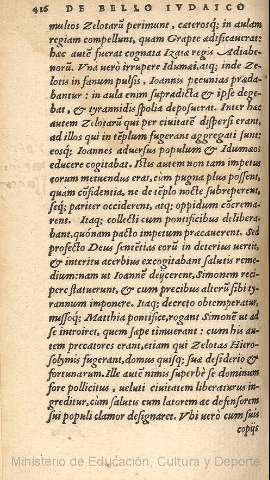 416 DE BELLO IVDAICO
multos Zelotarũ perimunt, caterosq; in aulam
regiam compellunt, quam Grapte ædificauerat:
hac autẽ fuerat cognata Izatæ regis Adiabe-
norũ. Vna verò irrupere Idumæi, atq; inde Ze-
lotis in fanum pulsis, Ioannis pecunias præda-
bantur: in aula enim supradicta & ipse dege-
bat, & tyrannidis spolia deposuerat. Inter hæc
autem Zelotarũ qui per ciuitatẽ dispersi erant,
ad illos qui in tẽplũ fugerant aggregati sunt:
eosq; Ioannes aduersus populum & Idumæos
educere cogitabat. Istis autem non tam impetus
eorum metuendus erat, cùm pugna plus possent,
quàm cõfidentia, ne de tẽplo nocte subreperent,
seq; pariter occiderent, atq; oppidum cõcrema-
rent. Itaq; collecti cum pontificibus delibera-
bant, quónam pacto impetum præcauerent. Sed
profectò Deus sentẽtias eorũ in deterius vertit,
& interitu acerbius excogitabant salutis reme-
dium: nam ut Ioannẽ deijcerent, Simonem reci-
pere statuerunt, & cum precibus alterũ sibi ty-
rannum imponere. Itaq; decreto obtemperatur,
missoq; Matthia pontifice, rogant Simonẽ ut ad
se introiret, quem sæpe timuerant: cum his au-
tem precatores erant, etiam qui Zelotas Hiero-
solymis fugerant, domus quisq; sua desiderio &
fortunarum. Ille autẽ nimis superbè se dominum
fore pollicitus, veluti ciuitatem liberaturus in-
greditur, cùm salutis eum latorem ac defensorem
sui populi clamor designaret. Vbi verò cum suis
copijs
Ministerio de Educación, Cultura y Deporte